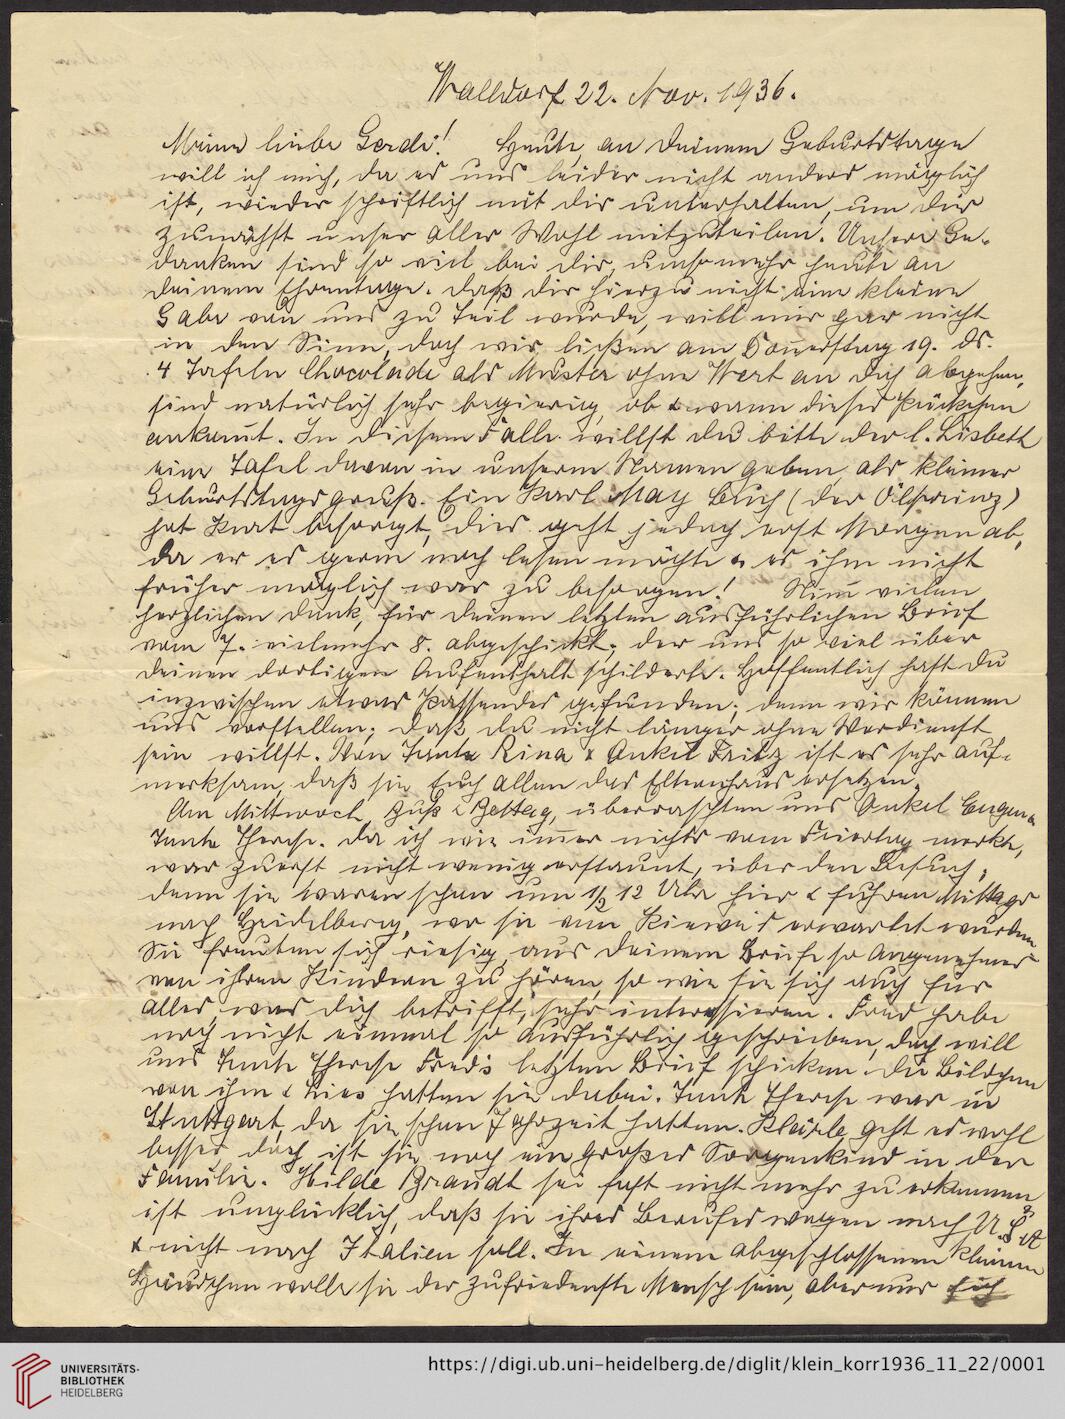 Walldorf 22. Nov. 1936.
Meine liebe Gerdi! Heute, an Deinem Geburtstage
will ich mich, da es uns leider nicht anders möglich
ist, wieder schriftlich mit Dir unterhalten, um Dir
zunächst unser aller Wohl mitzuteilen. Unsere Ge-
danken sind so viel bei Dir, umsomehr heute an
Deinem Ehrentage. Daß Dir hierzu nicht eine kleine
Gabe von uns zu Teil wurde, will mir gar nicht
in den Sinn, doch wir ließen am Donnerstag 19. ds.
4 Tafeln Chocolade als Muster ohne Wert an Dich abgehen,
sind natürlich sehr begierig, ob & wann dieses Päckchen
ankommt. In diesem Falle willst du bitte der l. Lisbeth
eine Tafel davon in unserem Namen geben als kleiner
Geburtstagsgruß. Ein Karl May Buch (der Ölprinz)
hat Kurt besorgt, dies geht jedoch erst Morgen ab,
da er es gerne noch lesen möchte & es ihm nicht
früher möglich war zu besorgen! Nimm vielen
herzlichen Dank, für Deinen letzten ausführlichen Brief
vom 7. vielmehr 8. abgeschickt, der uns so viel über
Deinen dortigen Aufenthalt schilderte. Hoffentlich hast Du
inzwischen etwas Passendes gefunden; denn wir können
uns vorstellen, daß du nicht länger ohne Verdienst
sein willst. Von Tante Rina & Onkel Fritz ist es sehr auf-
merksam, daß sie Euch allen das Elternhaus ersetzen.
Am Mittwoch, Buß & Bettag, überraschten uns Onkel Eugen &
Tante Therese. Da ich wie immer nichts vom Feiertag merkte,
war zuerst nicht wenig erstaunt, über den Besuch,
denn sie waren schon um 1/2 12 Uhr hier & fuhren Mittags
nach Heidelberg, wo sie von erwartet wurden
Sie freuten sich riesig, aus Deinem Briefe so Angenehmes
von ihren Kindern zu hören, so wie sie sich auch für
alles was Dich betrifft, sehr interessieren. Fred habe
noch nicht einmal so ausführlich geschrieben, doch will
uns Tante Therese Freds letzten Brief schicken. Die Bildchen
von ihm & Lies hatten sie dabei. Tante Therese war in
Stuttgart, da sie schon Jahrzeit hatten. Klärle geht es wohl
besser, doch ist sie noch ein großes Sorgenkind in der
Familie. Hilde Brandt sei fast nicht mehr zu erkennen
ist unglücklich, daß sie ihres Berufes wegen nach U.S.A
& nicht nach Italien soll. In einem abgeschlossenen kleinen
Häuschen wolle sie der zufriedenste Mensch sein, aber nur
UNIVERSITÄTS-
BIBLIOTHEK
HEIDELBERG
https://digi.ub.uni-heidelberg.de/diglit/klein_korr1936_11_22/0001